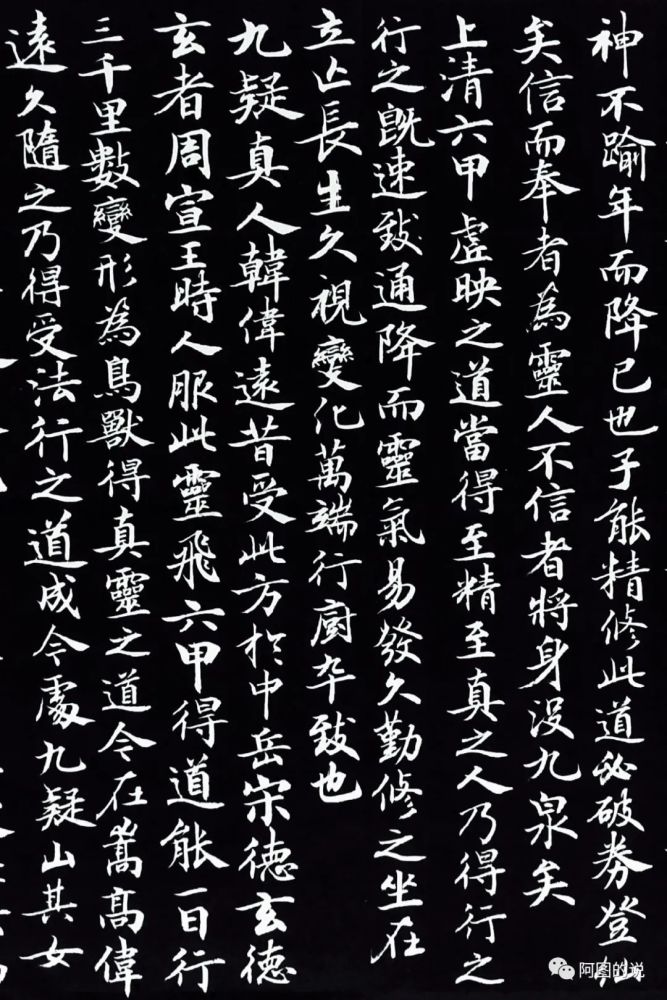 神不踰年而降已也子能精修此道必破券登仙
矣信而奉者為靈人不信者將身没九泉矣
上清六甲虛映之道當得至精至真之人乃得行之
行之既速致通降而靈氣易發久勤修之坐在
立亡長生久視變化萬端行廚卒致也
九疑真人韓偉遠昔受此方於中岳宋德玄德
玄者周宣王時人服此靈飛六甲得道能一日行
三千里數變形為鳥獸得真靈之道今在嵩高偉
遠久隨之乃得受法行之道成今處九疑山其女
阿图的说